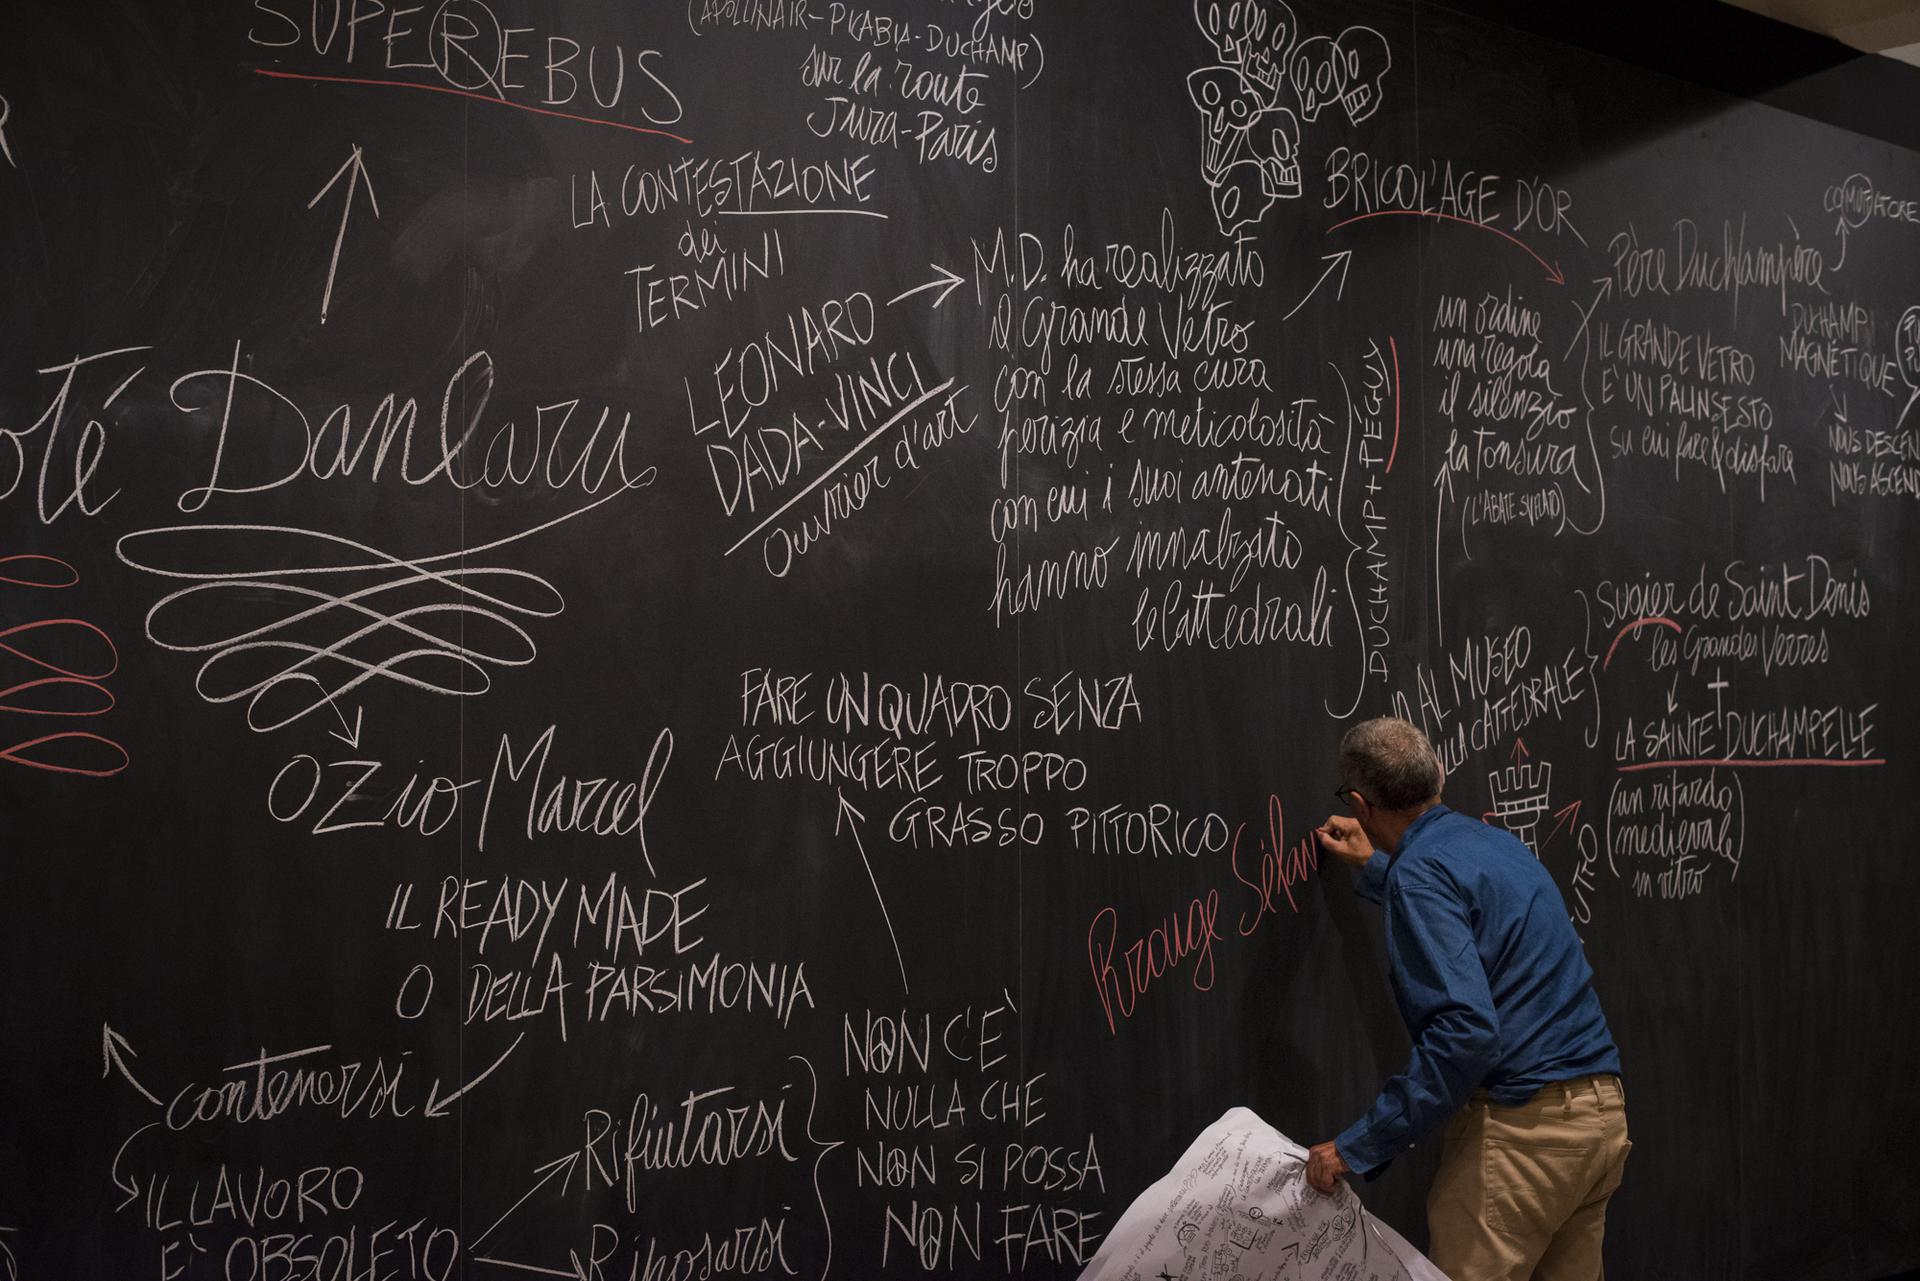 SUPEREBUS
(APOLLINAIR-PICABIA-DUCHAMP)
sur la route
Jura-Paris
LA CONTESTAZIONE
dei
TERMINI
LEONARD
DADA-VINCI
Ouvrier d'art
M.D. ha realizzato
il Grande Vetro
con la stessa cura
perizia e meticolosità
con cui i suoi antenati
hanno innalzato
le Cattedrali
DUCHAMP+PÉGUY
BRICOL'AGE D'OR
un ordine
una regola
il silenzio
la tonsura
(L'ABATE SVELATO)
Père Duchampère
IL GRANDE VETRO
E' UN PALINSESTO
su cui face & disfare
DUCHAMP
MAGNÉTIQUE
NOUS DESCEN
NOUS ASCEND
Danlaru
OZio Marcel
IL READY MADE
O DELLA PARSIMONIA
contenersi
IL LAVORO
E' OBSOLETO
Rifiutarsi
Riposarsi
FARE UN QUADRO SENZA
AGGIUNGERE TROPPO
GRASSO PITTORICO
NON C'E'
NULLA CHE
NON SI POSSA
NON FARE
Rrouge Sélav
AL MUSEO
CATTEDRALE
Sugier de Saint Denis
les Grandes Verres
LA SAINTE DUCHAMPELLE
(un ritardo
medievale
in vitro)